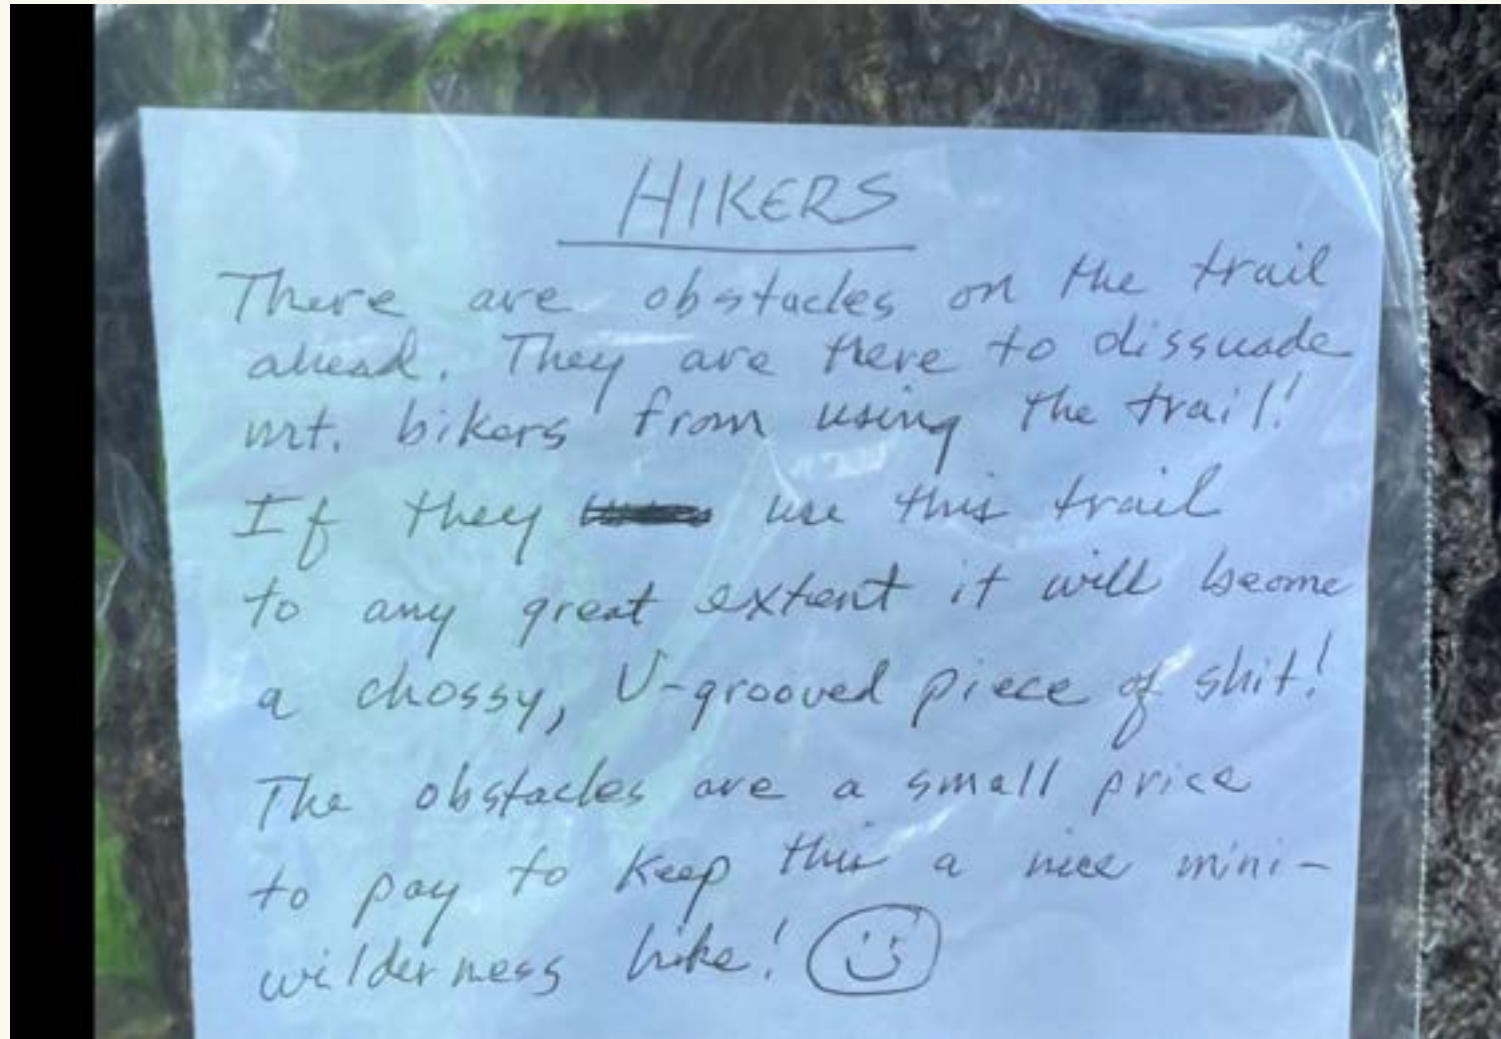 HIKERS
There are obstacles on the trail
ahead. They are there to dissuade
mt. bikers from using the trail!
If they use this trail
to any great extent it will become
a chossy, U-grooved piece of shit!
The obstacles are a small price
to pay to keep this a nice mini-
wilderness hike!